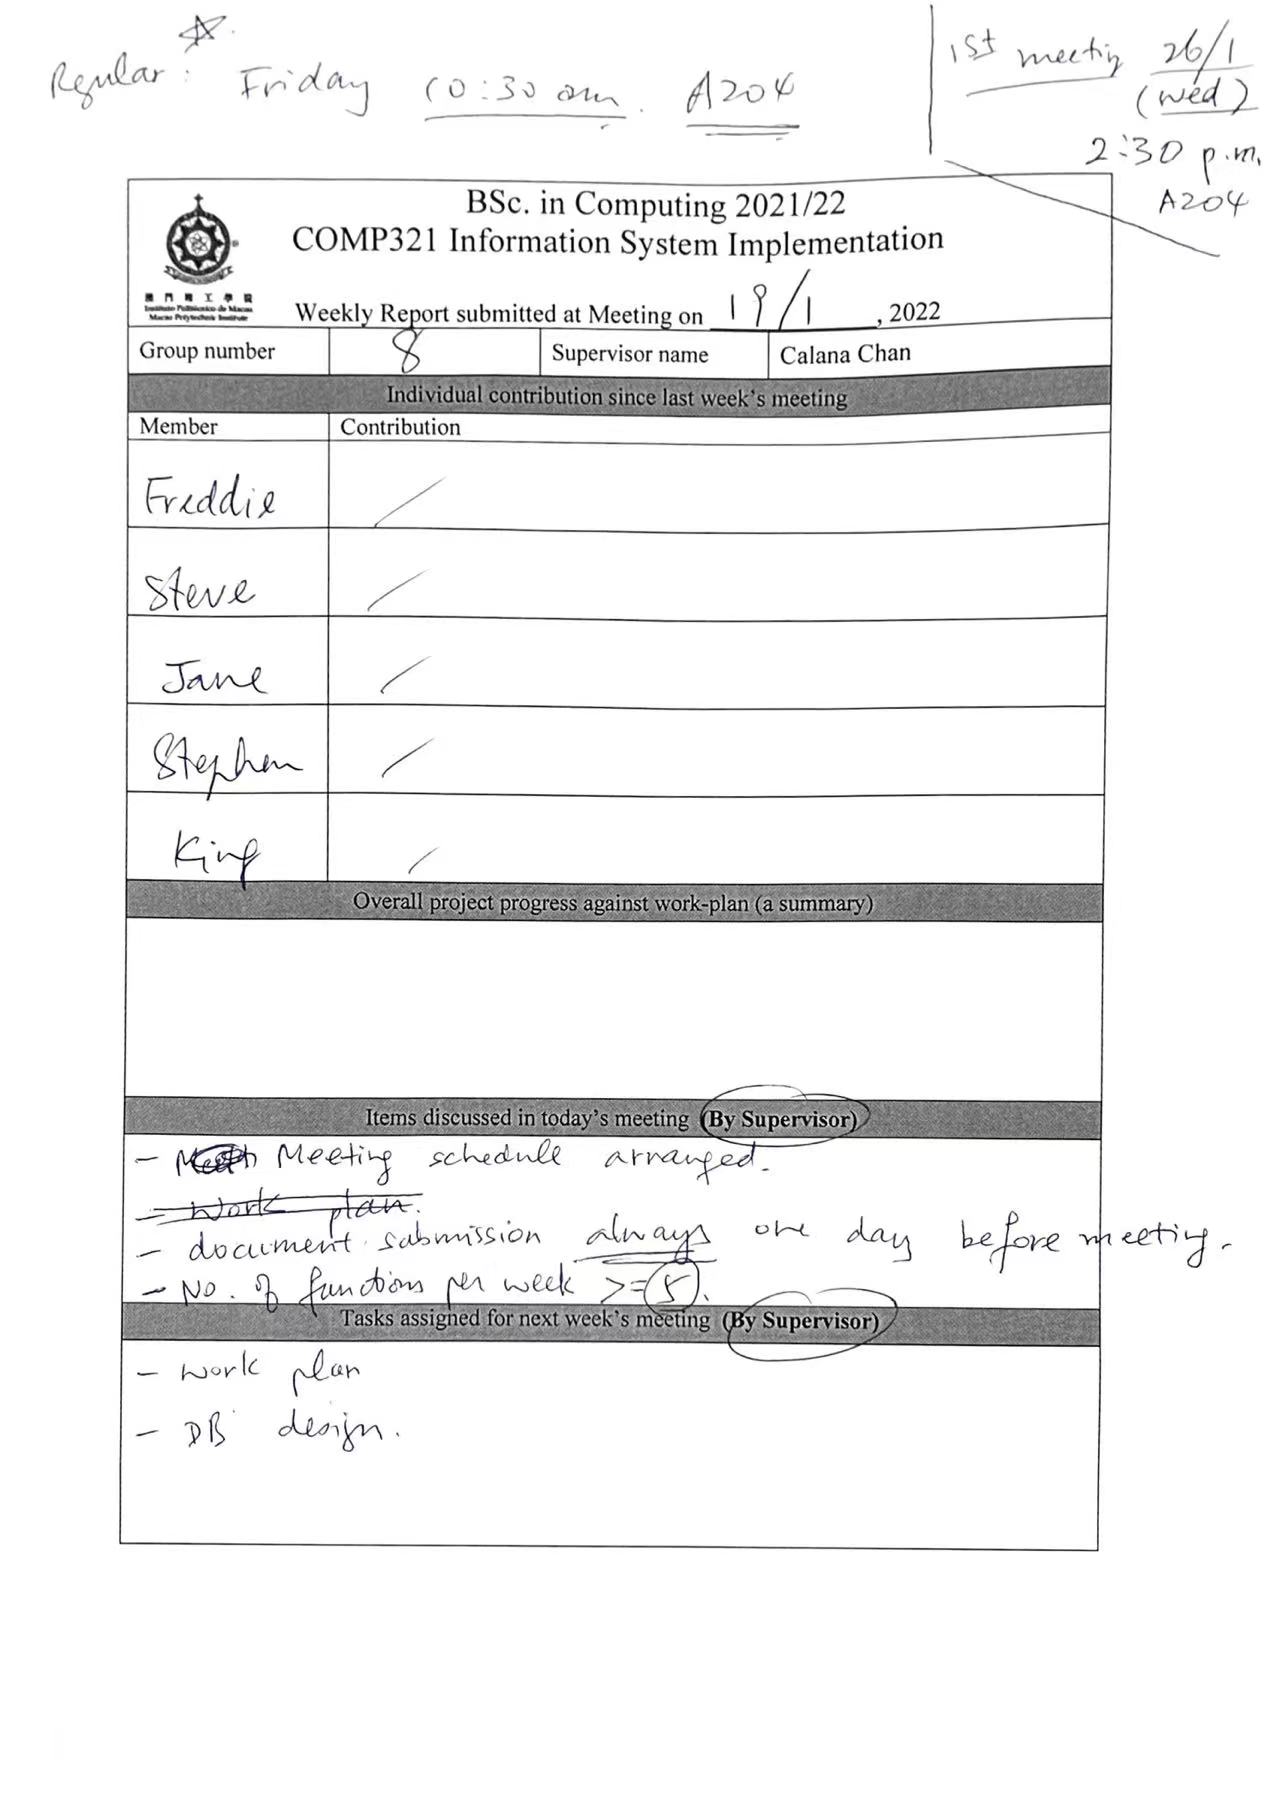 Regular: Friday 10:30 am. A204
1st meeting 26/1
(wed)
2:30 p.m.
A204
BSc. in Computing 2021/22
COMP321 Information System Implementation
澳門理工學院
Instituto Politécnico de Macau
Macao Polytechnic Institute
Weekly Report submitted at Meeting on 19/1, 2022
Group number 8 Supervisor name Calana Chan
Individual contribution since last week's meeting
Member Contribution
Freddie /
Steve /
Jane /
Stephen /
King /
Overall project progress against work-plan (a summary)
Items discussed in today's meeting (By Supervisor)
- Meeting schedule arranged.
- Work plan.
- document submission always one day before meeting.
- No. of functions per week >= 5.
Tasks assigned for next week's meeting (By Supervisor)
- work plan
- DB design.